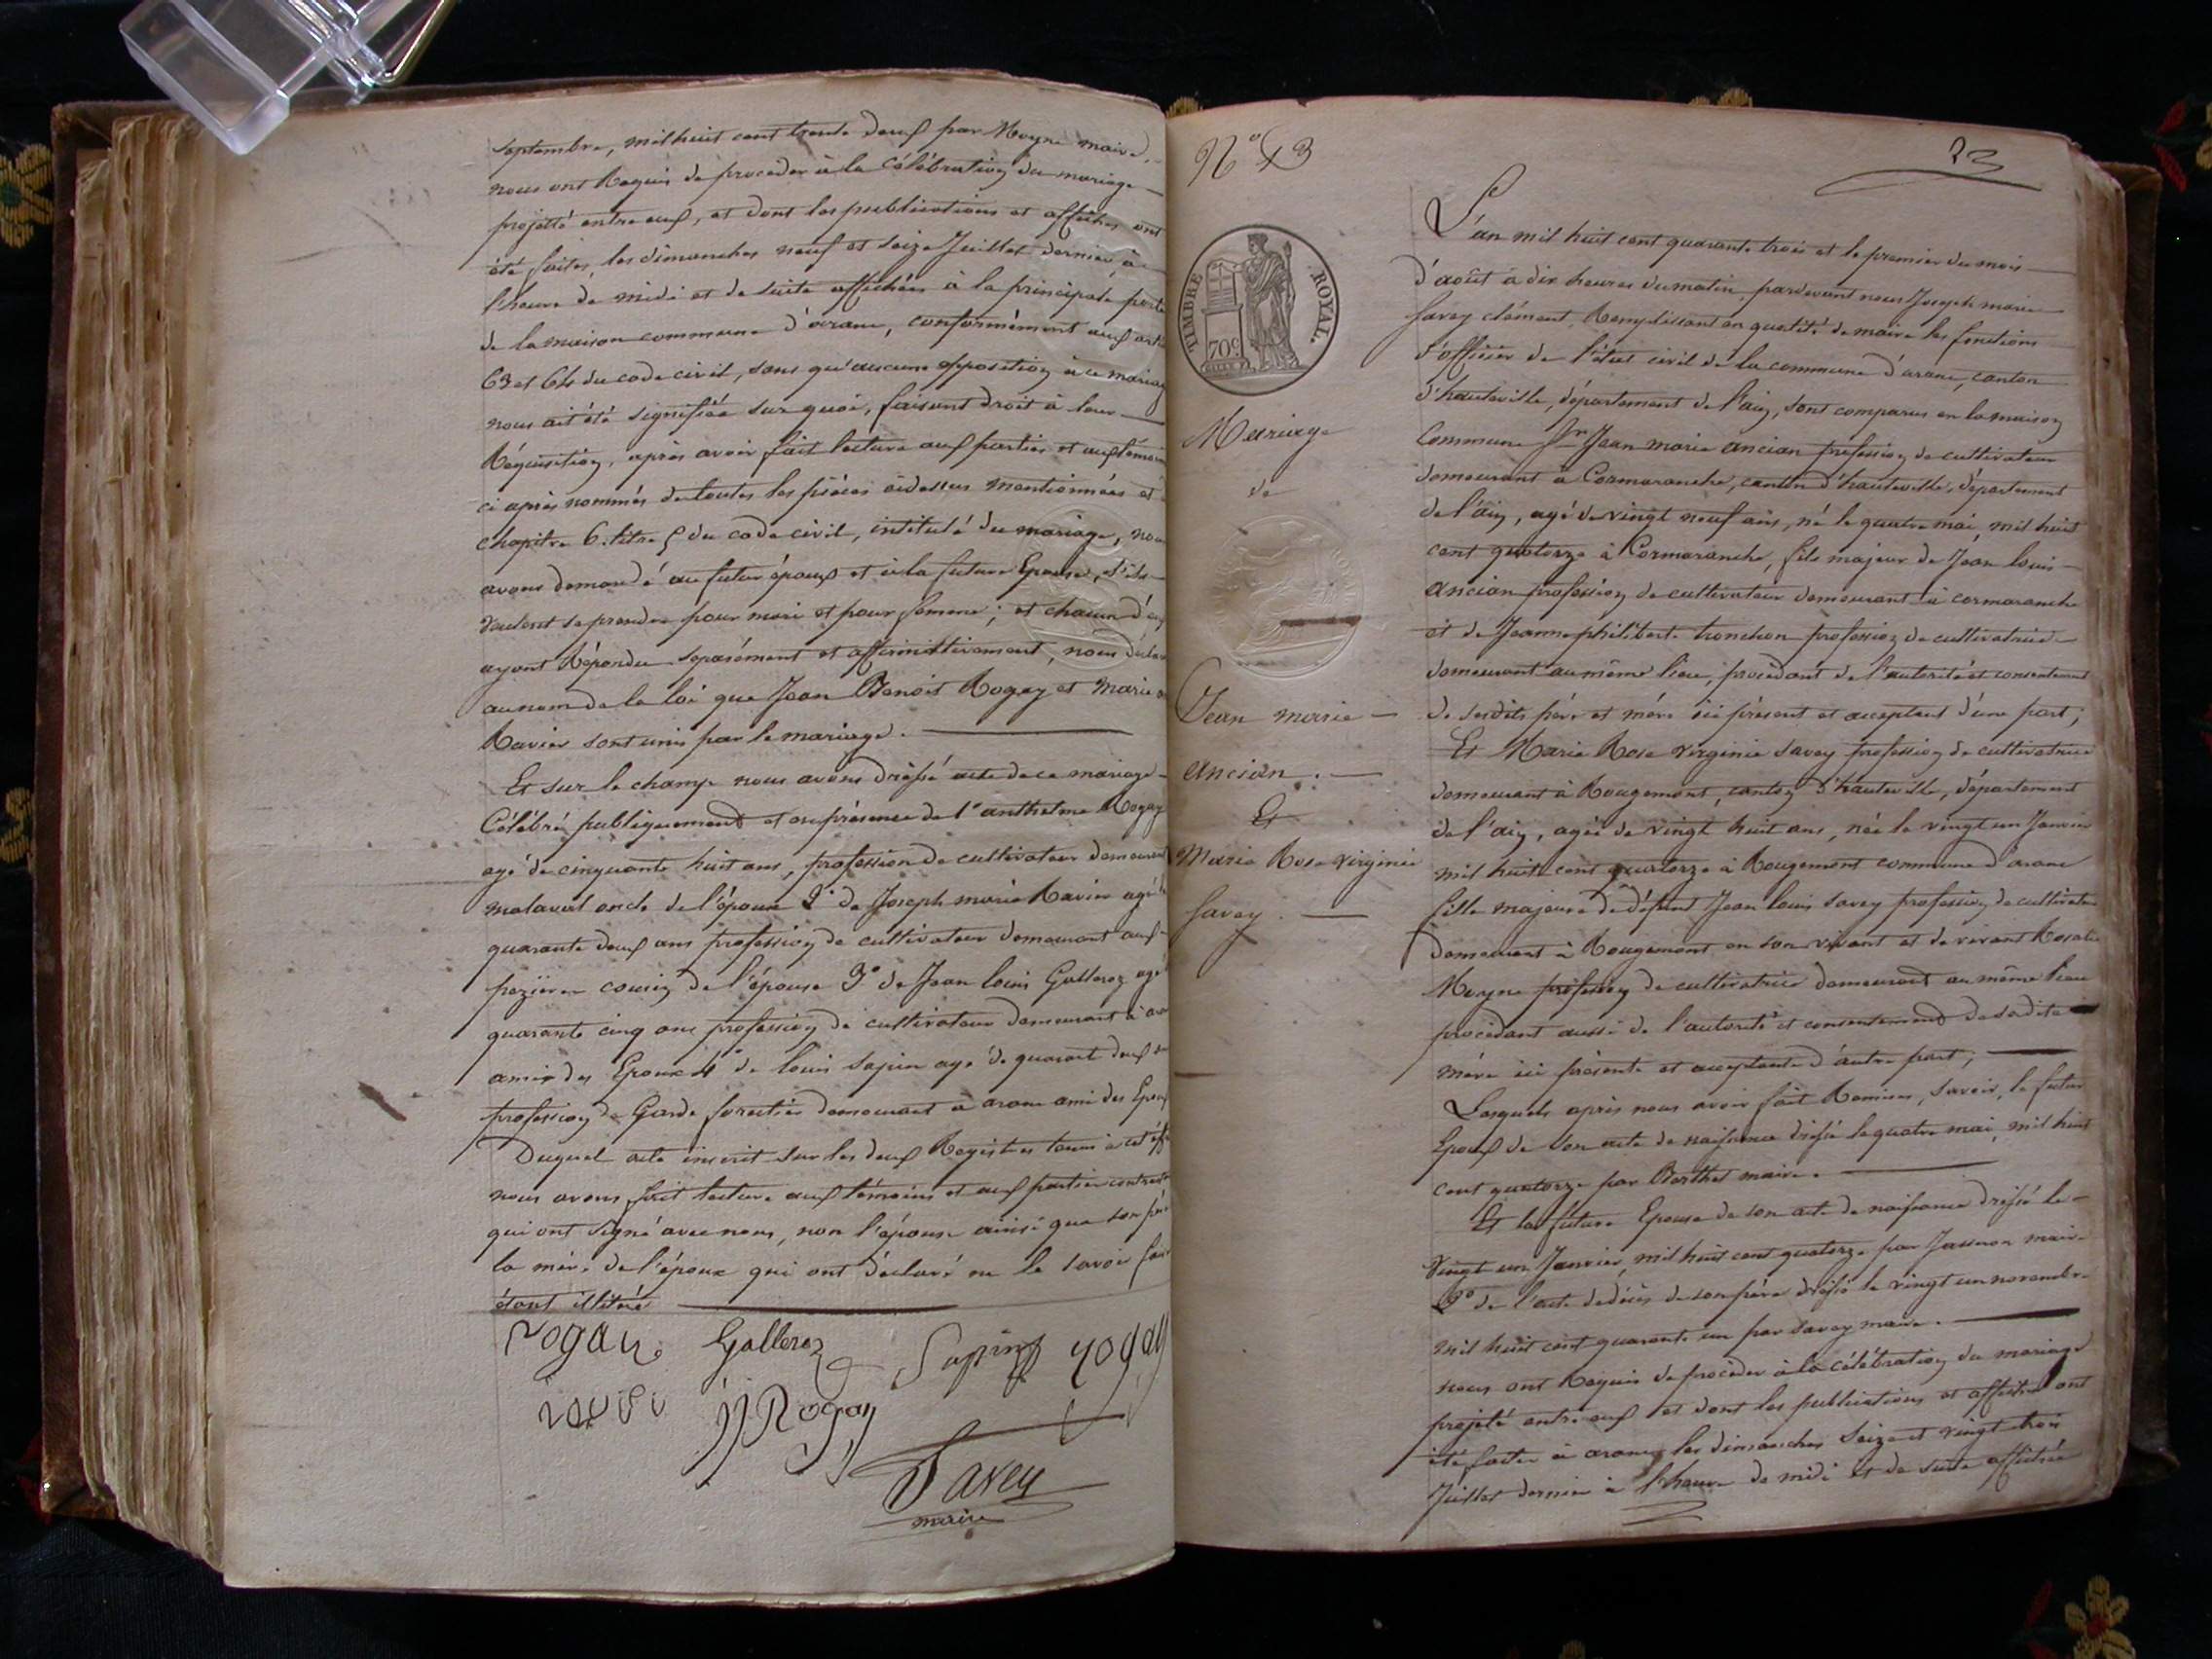 septembre, mil huit cent trente deux par Moyne maire,
nous ont Requis de procéder à la Célébration du mariage
projetté entre eux, et dont les publications et affiches ont
été faites, les dimanches neuf et seize Juillet dernier, à
l'heure de midi et de suite affichées à la principale porte
de la maison commune d'arane, conformément aux art
63 et 64 du code civil, sans qu'aucune opposition à ce mariag
nous ait été signifiée sur quoi, faisant droit à leur
Réquisition, après avoir fait lecture aux parties et aux témoin
ci après nommés de toutes les pièces cidessus mentionnées et
chapitre 6. titre 5 du code civil, intitulé du mariage, nou
avons demandé au futur époux et à la future Epouse, s'ils
veulent se prendre pour mari et pour femme ; et chacun d'eux
ayant Répondu séparément et affirmativement, nous décla
au nom de la loi que Jean Benoit Rogay et Marie
Ravier sont unis par le mariage.
Et sur le champ nous avons dressé acte de ce mariage
Célébré publiquement et en présence de 1° anthelme Rogay
agé de cinquante huit ans, profession de cultivateur demeurant
malaval oncle de l'époux 2° de Joseph marie Ravier agé
quarante deux ans profession de cultivateur demeurant aux
pezières cousin de l'épouse 3° de Jean louis Galleroz agé
quarante cinq ans profession de cultivateur demeurant à
amis des Epoux 4° de louis Sapin agé de quarante deux
profession de Garde forestier demeurant à arane ami des Epoux
Duquel acte inscrit sur les deux Registres tenus à cet effe
nous avons fait lecture aux témoins et aux parties contract
qui ont signé avec nous, non l'épouse ainsi que son pèr
la mère de l'époux qui ont déclaré ne le savoir fair
étant illitéré
rogay Galleroz Sapin rogay
JJ Rogay
Savey
maire
N° 43
23
TIMBRE ROYAL.
70c
Mariage
de
Jean marie
ancian.
Et
Maria Rose virginie
Savey.
L'an mil huit cent quarante trois et le premier du mois
d'août à dix heures du matin, pardevant nous Joseph marie
Savey clément, Remplissant en qualité de maire les fonctions
d'officier de l'état civil de la commune d'arane, canton
d'hauteville, département de l'ain, sont comparus en la maison
Commune Sr Jean marie ancian profession de cultivateur
demeurant à Cormaranche, canton d'hauteville, département
de l'ain, agé de vingt neuf ans, né le quatre mai, mil huit
cent quatorze à Cormaranche, fils majeur de Jean louis
Ancian profession de cultivateur demeurant à cormaranche
et de Jeanne philiberte tronchon profession de cultivatrice
demeurant au même lieu, procédant de l'autorité et consentement
de sesdits père et mère ici présent et acceptant d'une part ;
Et Marie Rose virginie Savey profession de cultivatrice
demeurant à Rougemont, canton d'hauteville, département
de l'ain, agée de vingt huit ans, née le vingt un Janvier
mil huit cent quatorze à Rougemont commune d'arane
fille majeure de défunt Jean louis Savey profession de cultivateur
demeurant à Rougemont en son vivant et de vivant Rosalie
Moyne profession de cultivatrice demeurant au même lieu
procédant aussi de l'autorité et consentement de sadite
mère ici présente et acceptante d'autre part ;
Lesquels après nous avoir fait Remises, savoir, le futur
Epoux de son acte de naissance dressé le quatre mai, mil huit
cent quatorze par Berthet maire.
Et la future Epouse de son acte de naissance dressé le
vingt un Janvier, mil huit cent quatorze par Jasseron maire
2° de l'acte de décès de son père dressé le vingt un novembre
mil huit cent quarante un par Savey maire.
nous ont Requis de procéder à la célébration du mariage
projeté entre eux et dont les publications et affiches ont
été faites à arane les dimanches seize et vingt trois
Juillet dernier à l'heure de midi et de suite affichée